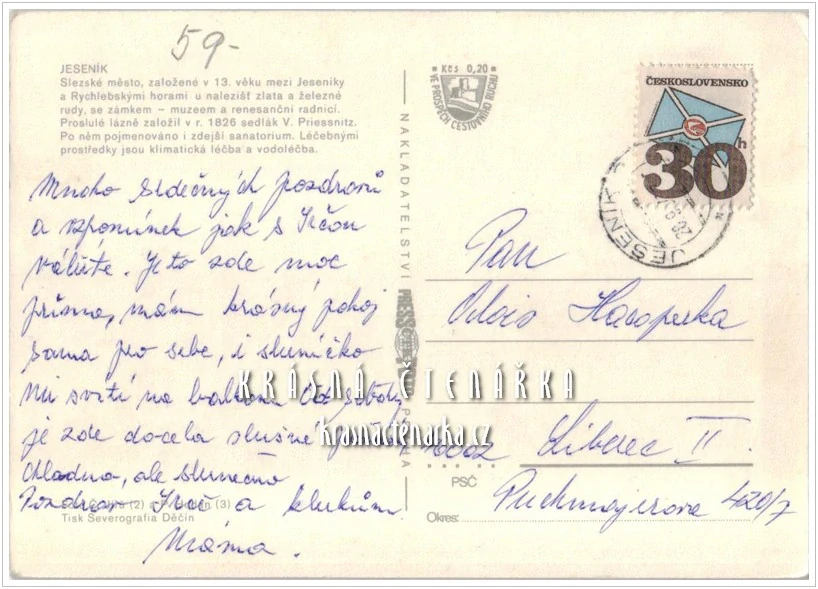 59-
JESENÍK
Slezské město, založené v 13. věku mezi Jeseníky
a Rychlebskými horami u nalezišť zlata a železné
rudy, se zámkem – muzeem a renesanční radnicí.
Proslulé lázně založil v r. 1826 sedlák V. Priessnitz.
Po něm pojmenováno i zdejší sanatorium. Léčebnými
prostředky jsou klimatická léčba a vodoléčba.
Mnoho srdečných pozdravů
a vzpomínek jak s
. Je to zde moc
príma, mám krásný pokoj
sama pro sebe, i sluníčko
mi svítí na balkon. Od soboty
je zde docela slušné
chladno, ale slunečno
Pozdrav a klukům
Máma.
(2) a (3)
Tisk Severografia Děčín
NAKLADATELSTVÍ PRESSFOTO PRAHA
Kčs 0,20
VE PROSPĚCH CESTOVNÍHO RUCHU
ČESKOSLOVENSKO
30h
JESENÍK
Pan
Alois
Liberec II
PSČ
Puchmajerova 420/7
Okres:
KRÁSNÁ ČTENÁŘKA
krasnactenarka.cz